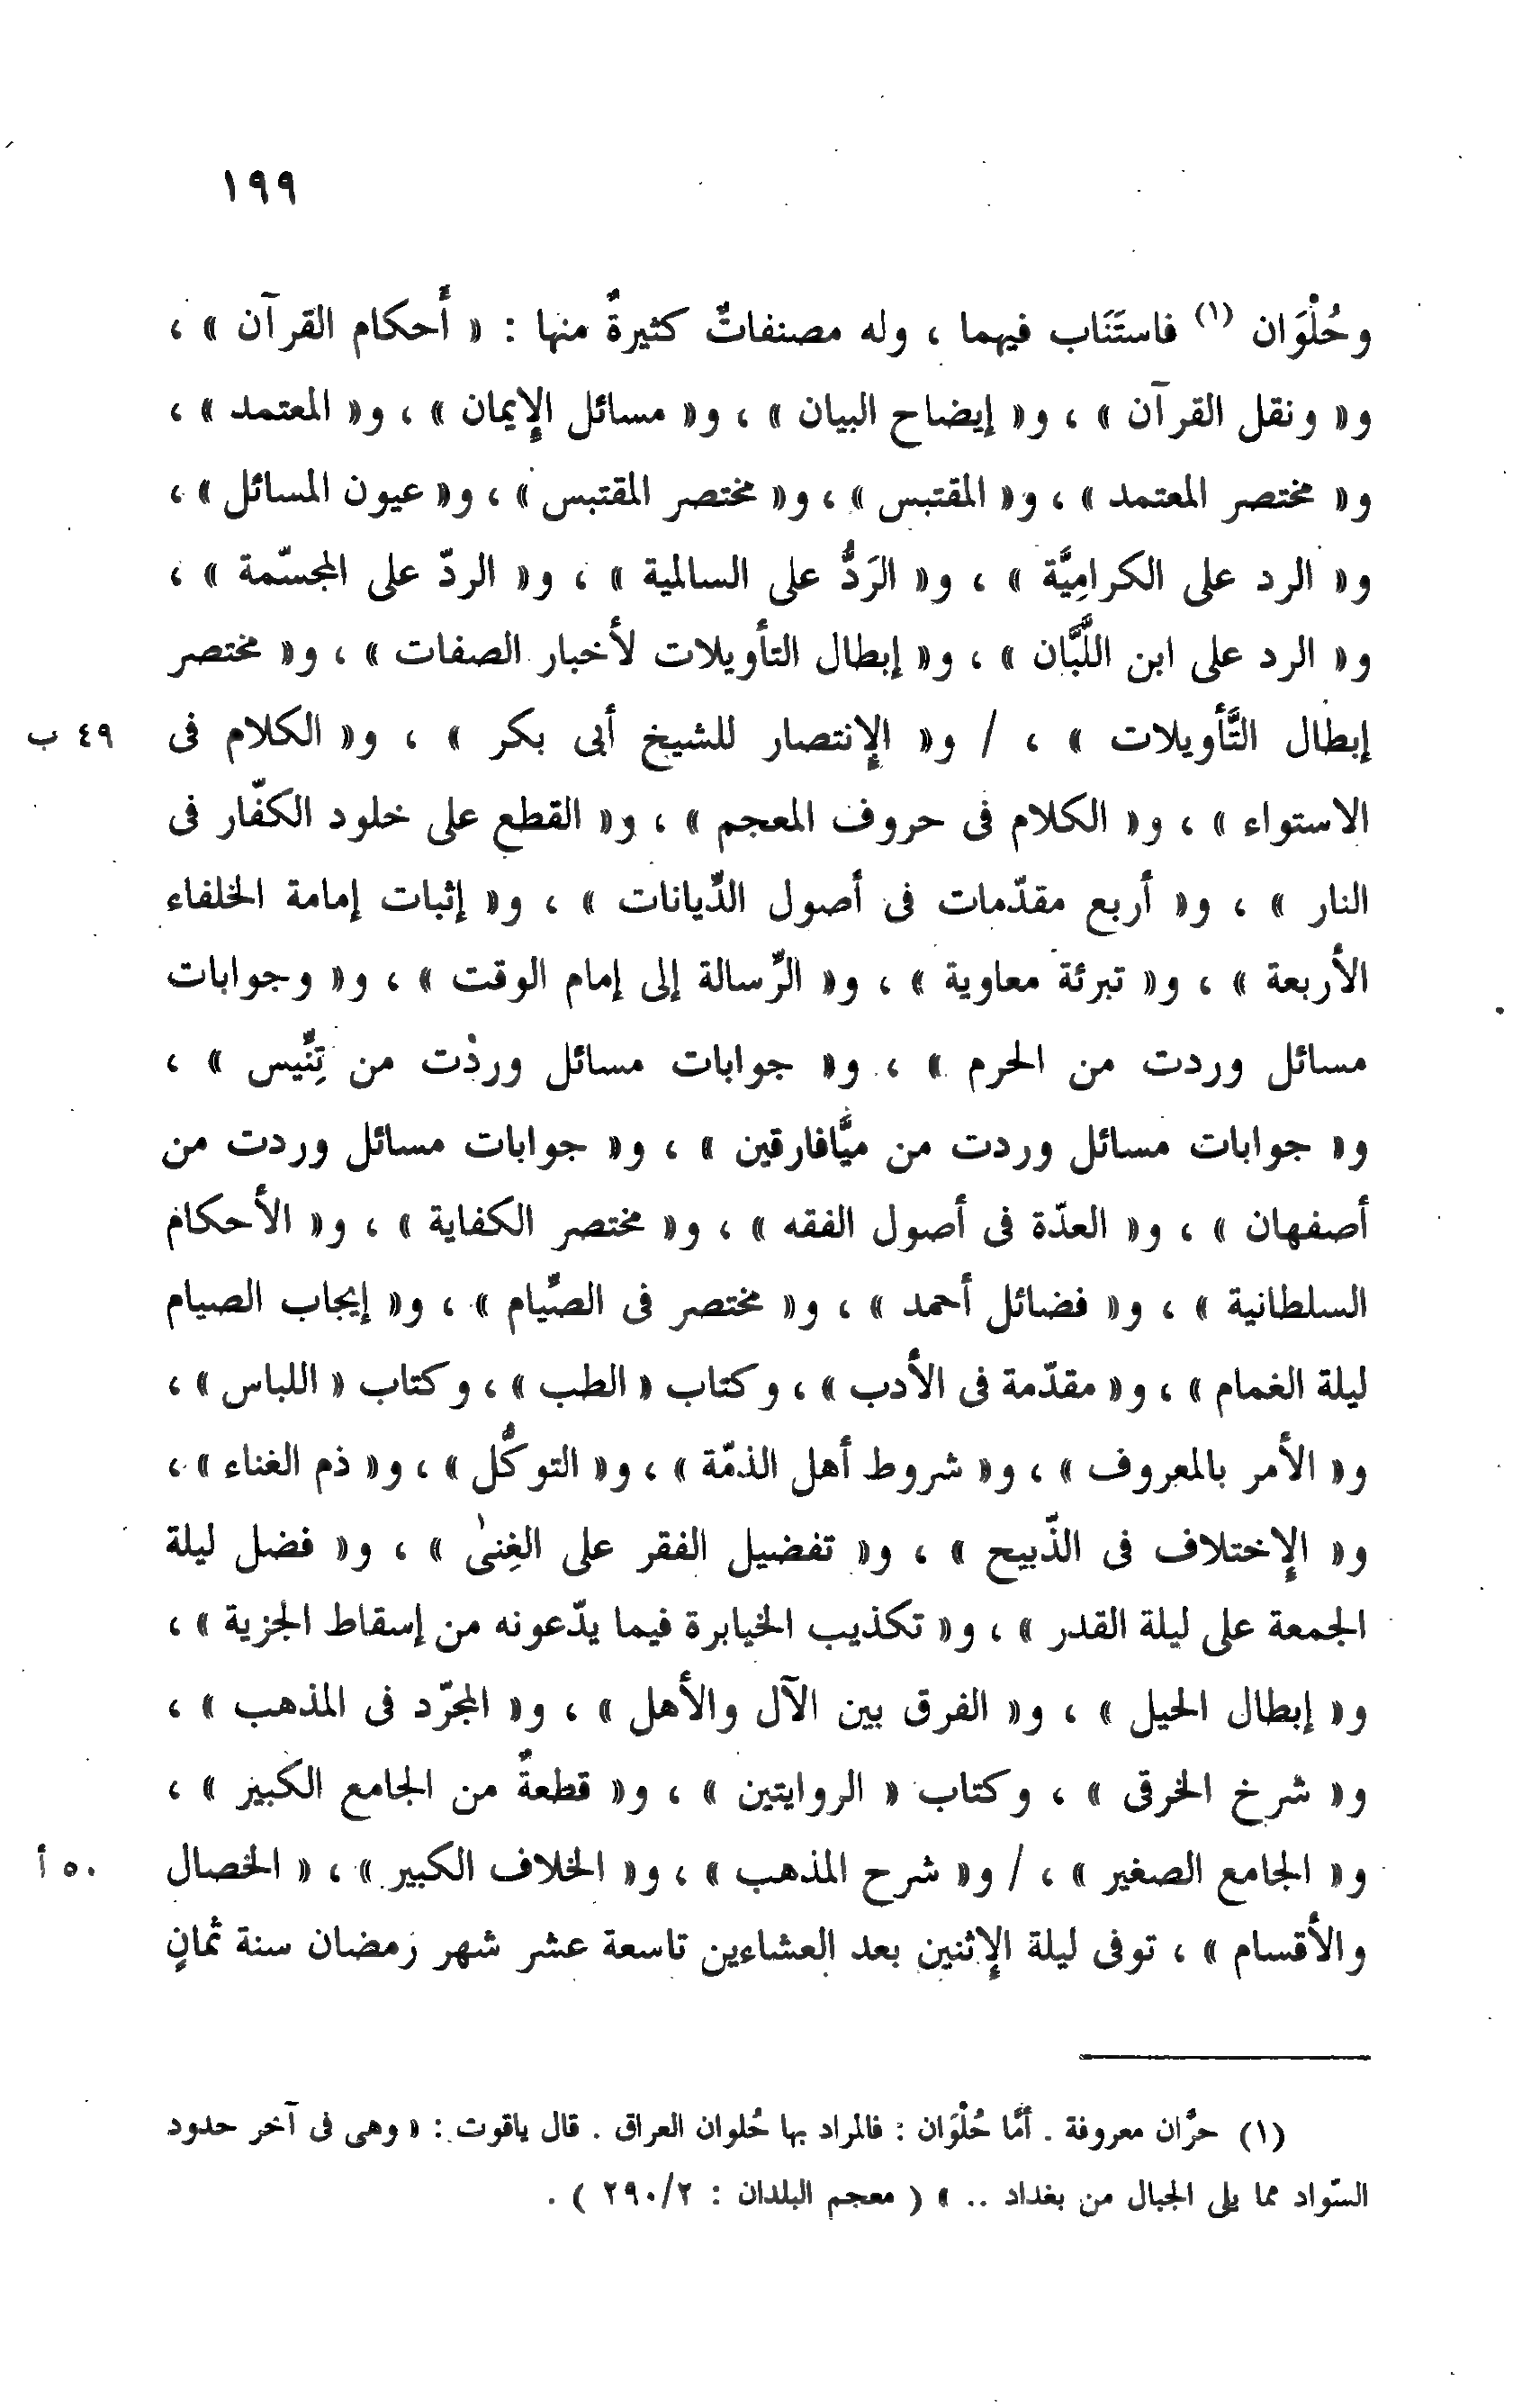 ١٩٩
وحُلْوَان (١) فاستَنَاب فيهما ، وله مصنفاتٌ كثيرةٌ منها : « أَحكام القرآن » ،
و« ونقل القرآن » ، و« إيضاح البيان » ، و« مسائل الإيمان » ، و« المعتمد » ،
و« مختصر المعتمد » ، و« المقتبس » ، و« مختصر المقتبس » ، و« عيون المسائل » ،
و« الرد على الكرامِيَّة » ، و« الرَدُّ على السالمية » ، و« الردّ على المجسّمة » ،
و« الرد على ابن اللَّبَّان » ، و« إبطال التأويلات لأخبار الصفات » ، و« مختصر
إبطال التَّأويلات » ، / و« الإنتصار للشيخ أبى بكر » ، و« الكلام فى ٤٩ ب
الاستواء » ، و« الكلام فى حروف المعجم » ، و« القطع على خلود الكفّار فى
النار » ، و« أربع مقدّمات فى أصول الدِّيانات » ، و« إثبات إمامة الخلفاء
الأربعة » ، و« تبرئة معاوية » ، و« الرِّسالة إلى إمام الوقت » ، و« وجوابات
مسائل وردت من الحرم » ، و« جوابات مسائل وردت من تِنِّيس » ،
و« جوابات مسائل وردت من ميَّافارقين » ، و« جوابات مسائل وردت من
أصفهان » ، و« العدّة فى أصول الفقه » ، و« مختصر الكفاية » ، و« الأحكام
السلطانية » ، و« فضائل أحمد » ، و« مختصر فى الصِّيام » ، و« إيجاب الصيام
ليلة الغمام » ، و« مقدّمة فى الأدب » ، وكتاب « الطب » ، وكتاب « اللباس » ،
و« الأمر بالمعروف » ، و« شروط أهل الذمّة » ، و« التوكُّل » ، و« ذم الغناء » ،
و« الإختلاف فى الذّبيح » ، و« تفضيل الفقر على الغِنىٰ » ، و« فضل ليلة
الجمعة على ليلة القدر » ، و« تكذيب الخيابرة فيما يدّعونه من إسقاط الجزية » ،
و« إبطال الحيل » ، و« الفرق بين الآل والأهل » ، و« المجرّد فى المذهب » ،
و« شرح الخرقى » ، وكتاب « الروايتين » ، و« قطعةٌ من الجامع الكبير » ،
و« الجامع الصغير » ، / و« شرح المذهب » ، و« الخلاف الكبير » ، « الخصال ٥٠ أ
والأقسام » ، توفى ليلة الإثنين بعد العشاءين تاسعة عشر شهر رمضان سنة ثمانٍ
(١) حرَّان معروفة . أمَّا حُلْوَان : فالمراد بها حُلوان العراق . قال ياقوت : « وهى فى آخر حدود
السّواد مما يلى الجبال من بغداد .. » ( معجم البلدان : ٢٩٠/٢ ) .